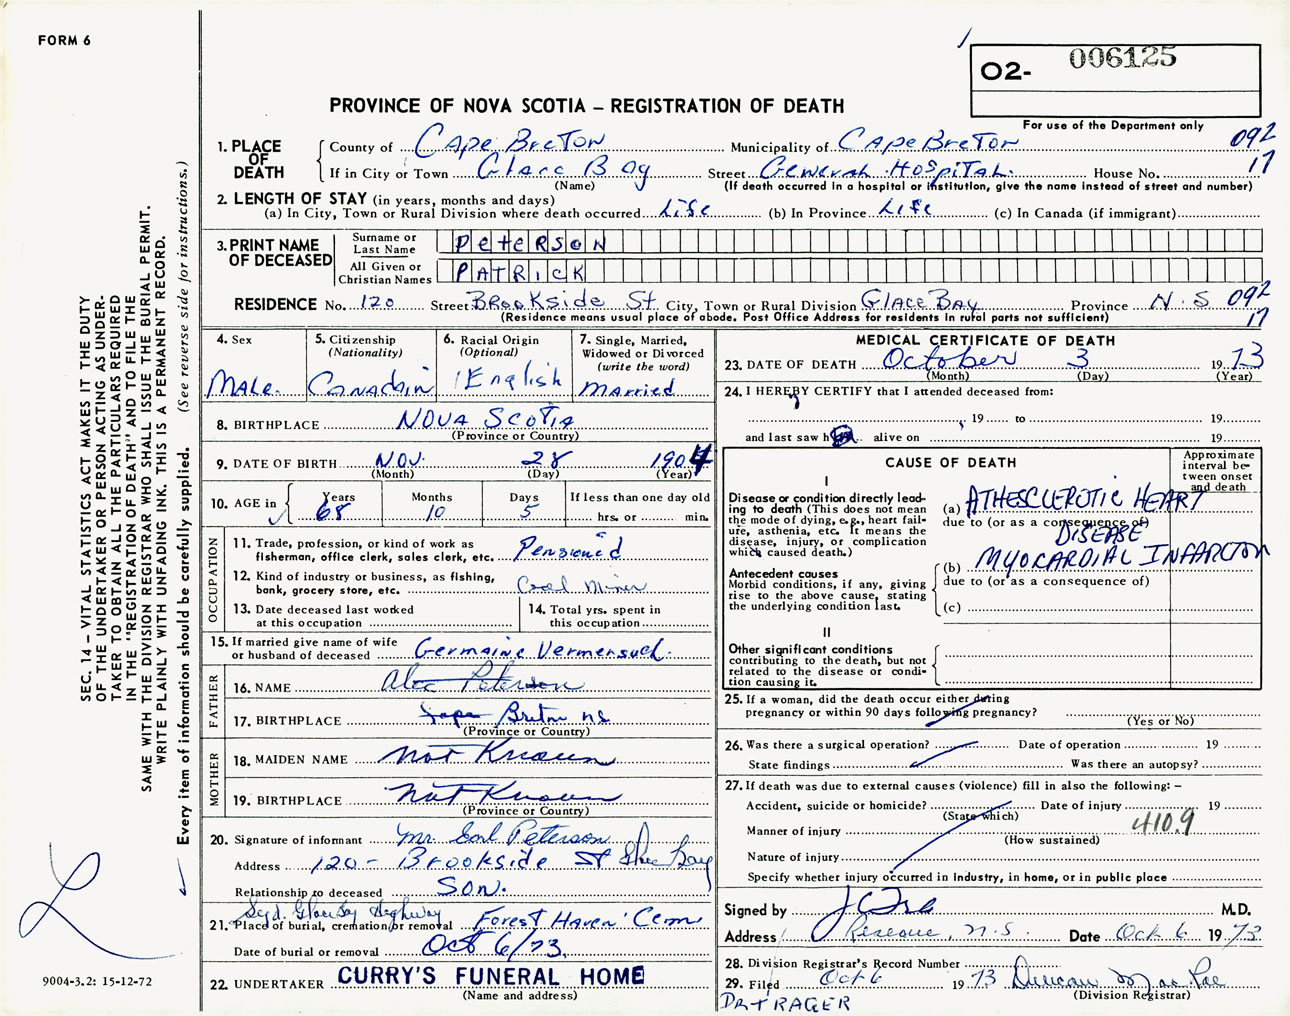 FORM 6
O2- 006125
PROVINCE OF NOVA SCOTIA – REGISTRATION OF DEATH
For use of the Department only
1. PLACE OF DEATH County of Cape Breton Municipality of Cape Breton 092
If in City or Town Glace Bay Street General Hospital. House No. 17
(Name) (If death occurred in a hospital or institution, give the name instead of street and number)
2. LENGTH OF STAY (in years, months and days)
(a) In City, Town or Rural Division where death occurred Life (b) In Province Life (c) In Canada (if immigrant)
3. PRINT NAME OF DECEASED Surname or Last Name PeteRSON
All Given or Christian Names PATRICK
RESIDENCE No. 120 Street Brookside St City, Town or Rural Division Glace Bay Province N.S 092
(Residence means usual place of abode. Post Office Address for residents in rural parts not sufficient) 17
4. Sex Male.
5. Citizenship (Nationality) Canadain
6. Racial Origin (Optional) English
7. Single, Married, Widowed or Divorced (write the word) Married
8. BIRTHPLACE Nova Scotia
(Province or Country)
9. DATE OF BIRTH Nov. 28 1904
(Month) (Day) (Year)
10. AGE in Years 68 Months 10 Days 5 If less than one day old hrs. or min.
OCCUPATION
11. Trade, profession, or kind of work as fisherman, office clerk, sales clerk, etc. Pensioned
12. Kind of industry or business, as fishing, bank, grocery store, etc. Coal Miner
13. Date deceased last worked at this occupation
14. Total yrs. spent in this occupation
15. If married give name of wife or husband of deceased Germaine
FATHER
16. NAME Alec Peterson
17. BIRTHPLACE Cape Breton ns
(Province or Country)
MOTHER
18. MAIDEN NAME not Known
19. BIRTHPLACE not Known
(Province or Country)
20. Signature of informant Mr. Earl Peterson
Address 120 - Brookside St Glace Bay
Relationship to deceased Son.
Syd. Glace Bay Highway
21. Place of burial, cremation or removal Forest Haven Cem
Date of burial or removal Oct 6/73.
22. UNDERTAKER CURRY'S FUNERAL HOME
(Name and address)
MEDICAL CERTIFICATE OF DEATH
23. DATE OF DEATH October 3 1973
(Month) (Day) (Year)
24. I HEREBY CERTIFY that I attended deceased from:
19 to 19
and last saw h alive on 19
CAUSE OF DEATH
Approximate interval between onset and death
I
Disease or condition directly leading to death (This does not mean the mode of dying, e.g., heart failure, asthenia, etc. It means the disease, injury, or complication which caused death.)
(a) ATHESCLEROTIC HEART
due to (or as a consequence of)
DISEASE
Antecedent causes
Morbid conditions, if any, giving rise to the above cause, stating the underlying condition last.
(b) MYOCARDIAL INFARCTION
due to (or as a consequence of)
(c)
II
Other significant conditions contributing to the death, but not related to the disease or condition causing it.
25. If a woman, did the death occur either during pregnancy or within 90 days following pregnancy?
(Yes or No)
26. Was there a surgical operation? Date of operation 19
State findings Was there an autopsy?
27. If death was due to external causes (violence) fill in also the following: –
Accident, suicide or homicide? Date of injury 19
(State which)
Manner of injury 410.9
(How sustained)
Nature of injury
Specify whether injury occurred in Industry, in home, or in public place
Signed by M.D.
Address Reserve, N.S. Date Oct 6 1973
28. Division Registrar's Record Number
29. Filed Oct 6 1973 Duncan MacRae
(Division Registrar)
Dr TRAGER
SEC. 14 – VITAL STATISTICS ACT MAKES IT THE DUTY
OF THE UNDERTAKER OR PERSON ACTING AS UNDER-
TAKER TO OBTAIN ALL THE PARTICULARS REQUIRED
IN THE "REGISTRATION OF DEATH" AND TO FILE THE
SAME WITH THE DIVISION REGISTRAR WHO SHALL ISSUE THE BURIAL PERMIT.
WRITE PLAINLY WITH UNFADING INK. THIS IS A PERMANENT RECORD.
Every item of information should be carefully supplied. (See reverse side for instructions.)
9004-3.2: 15-12-72